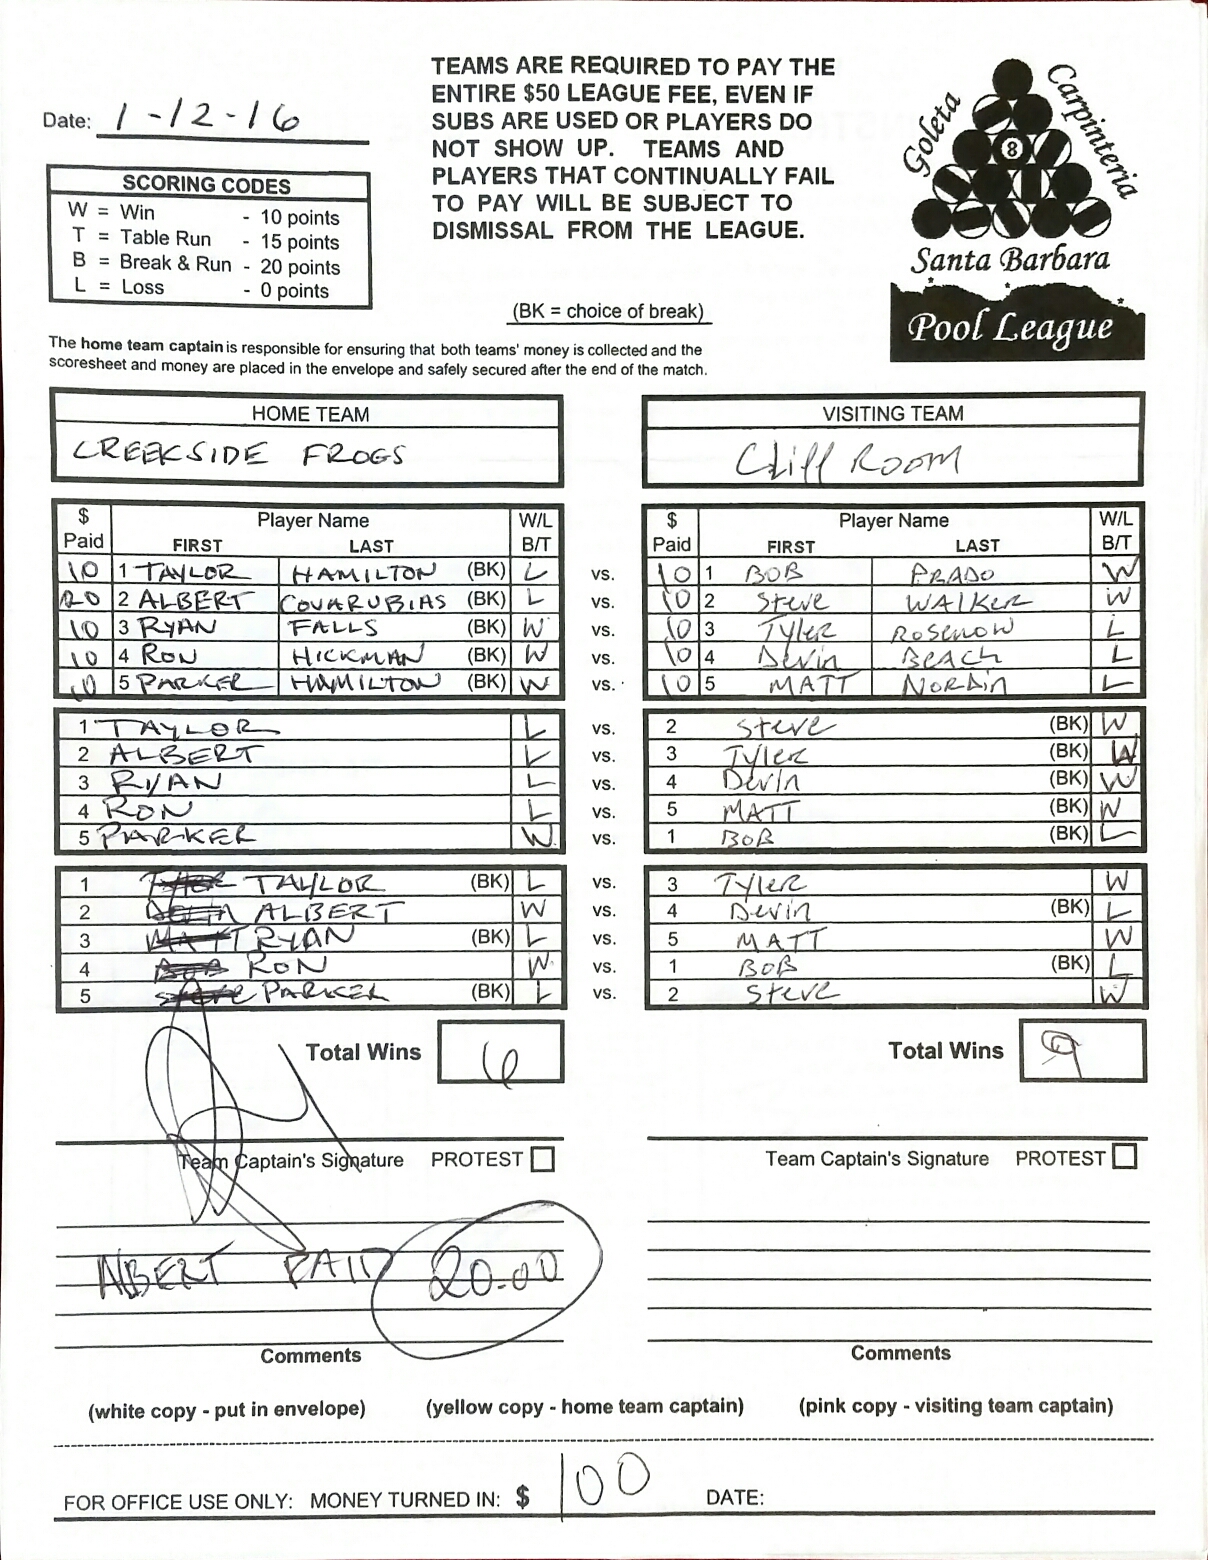 TEAMS ARE REQUIRED TO PAY THE
ENTIRE $50 LEAGUE FEE, EVEN IF
SUBS ARE USED OR PLAYERS DO
NOT SHOW UP. TEAMS AND
PLAYERS THAT CONTINUALLY FAIL
TO PAY WILL BE SUBJECT TO
DISMISSAL FROM THE LEAGUE.
Date: 1-12-16
Goleta
Carpinteria
8
Santa Barbara
Pool League
SCORING CODES
W = Win - 10 points
T = Table Run - 15 points
B = Break & Run - 20 points
L = Loss - 0 points
(BK = choice of break)
The home team captain is responsible for ensuring that both teams' money is collected and the
scoresheet and money are placed in the envelope and safely secured after the end of the match.
HOME TEAM VISITING TEAM
CREEKSIDE FROGS Cliff ROOM
$ Paid Player Name FIRST LAST W/L B/T $ Paid Player Name FIRST LAST W/L B/T
10 1 TAYLOR HAMILTON (BK) L vs. 10 1 BOB PRADO W
20 2 ALBERT COVARUBIAS (BK) L vs. 10 2 Steve WALKER W
10 3 RYAN FALLS (BK) W vs. 10 3 Tyler ROSENOW L
10 4 RON HICKMAN (BK) W vs. 10 4 Devin BEACH L
10 5 PARKER HAMILTON (BK) W vs. 10 5 MATT NORDIN L
1 TAYLOR L vs. 2 Steve (BK) W
2 ALBERT L vs. 3 Tyler (BK) W
3 RYAN L vs. 4 Devin (BK) W
4 RON L vs. 5 MATT (BK) W
5 PARKER W vs. 1 BOB (BK) L
1 TAYLOR (BK) L vs. 3 Tyler W
2 ALBERT W vs. 4 Devin (BK) L
3 MATT RYAN (BK) L vs. 5 MATT W
4 BOB RON W vs. 1 BOB (BK) L
5 PARKER (BK) L vs. 2 Steve W
Total Wins 6 Total Wins 9
Team Captain's Signature PROTEST Team Captain's Signature PROTEST
ALBERT PAID 20.00
Comments Comments
(white copy - put in envelope) (yellow copy - home team captain) (pink copy - visiting team captain)
FOR OFFICE USE ONLY: MONEY TURNED IN: $ 100 DATE: